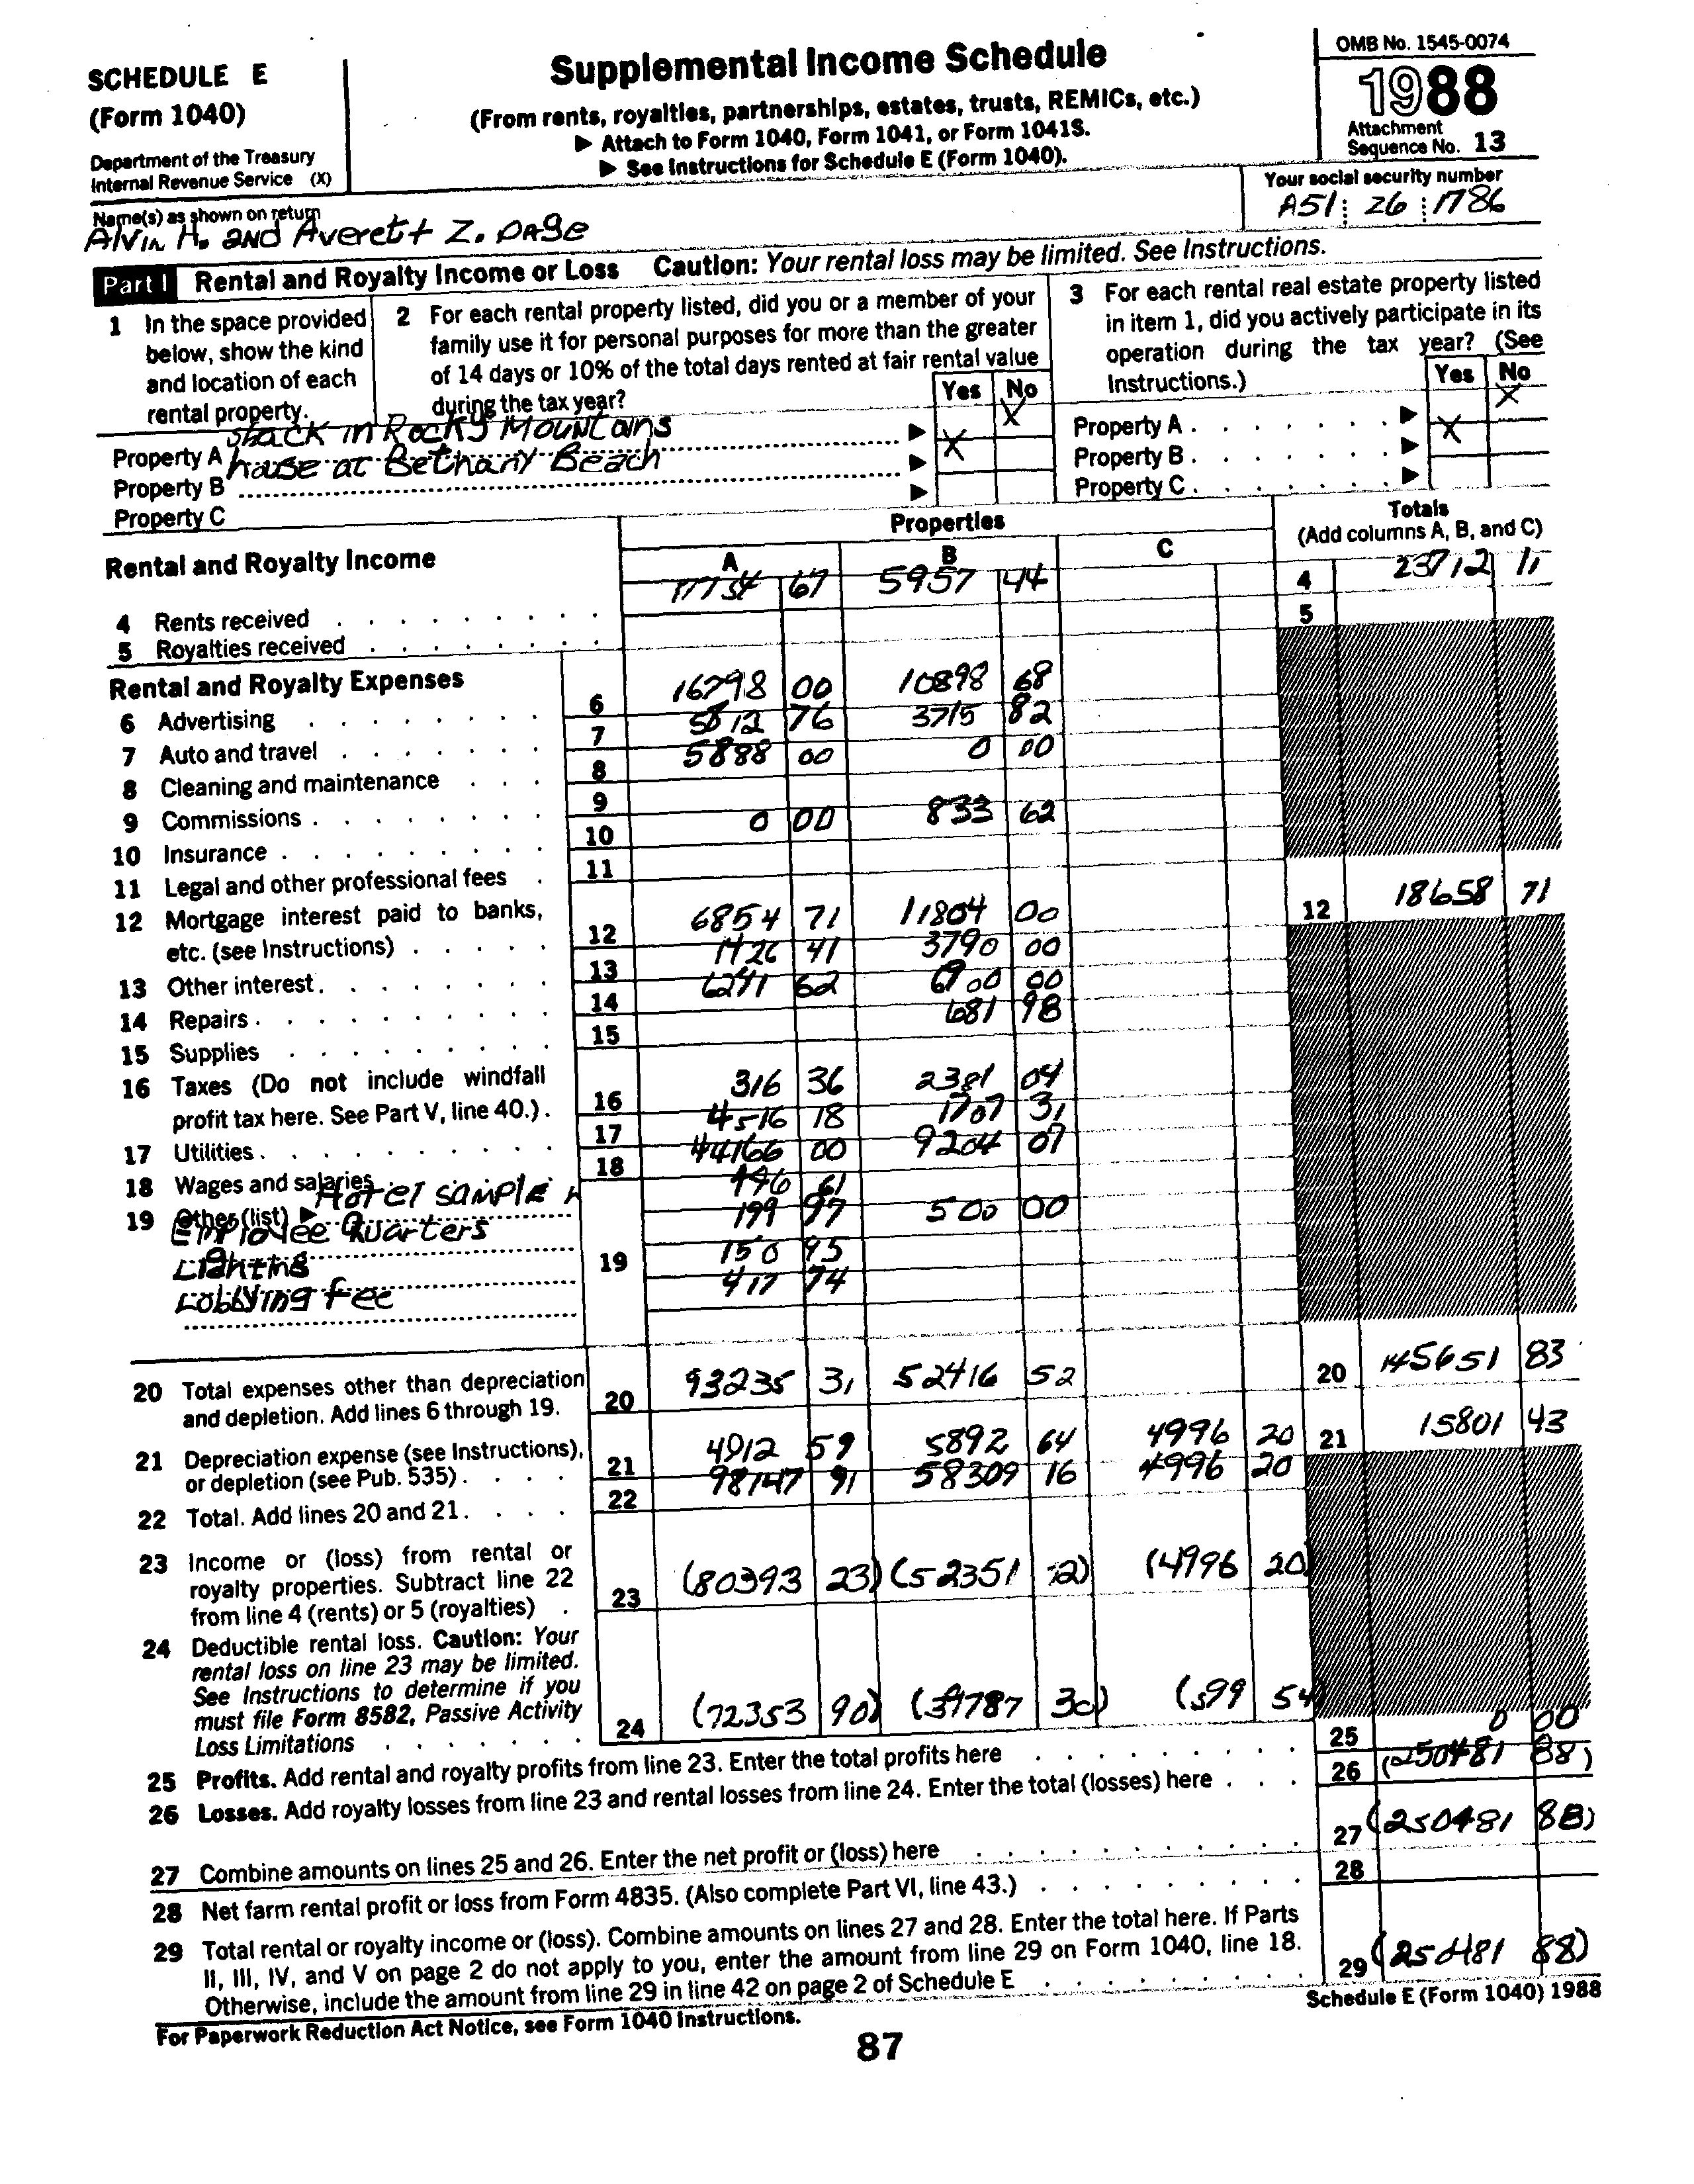 SCHEDULE E
(Form 1040)
Department of the Treasury
Internal Revenue Service (X)
Supplemental Income Schedule
(From rents, royalties, partnerships, estates, trusts, REMICs, etc.)
▶ Attach to Form 1040, Form 1041, or Form 1041S.
▶ See Instructions for Schedule E (Form 1040).
OMB No. 1545-0074
1988
Attachment
Sequence No. 13
Name(s) as shown on return
Alvin H. and Averett Z. Dage
Your social security number
A51 26 1786
Part I Rental and Royalty Income or Loss Caution: Your rental loss may be limited. See Instructions.
1 In the space provided
below, show the kind
and location of each
rental property.
2 For each rental property listed, did you or a member of your
family use it for personal purposes for more than the greater
of 14 days or 10% of the total days rented at fair rental value
during the tax year?
Yes No
3 For each rental real estate property listed
in item 1, did you actively participate in its
operation during the tax year? (See
Instructions.)
Yes No
Property A shack in Rocky Mountains X
Property B house at Bethany Beach X
Property C
Property A . . . . . . . ▶ X
Property B . . . . . . . ▶ X
Property C . . . . . . . ▶
Rental and Royalty Income
Properties
A B C
Totals
(Add columns A, B, and C)
4 Rents received 17754 67 5957 44 4 23712 11
5 Royalties received 5
Rental and Royalty Expenses
6 Advertising 6 16798 00 10898 68
7 Auto and travel 7 5812 76 3715 82
8 Cleaning and maintenance 8 5888 00 0 00
9 Commissions 9
10 Insurance 10 0 00 833 62
11 Legal and other professional fees 11
12 Mortgage interest paid to banks,
etc. (see Instructions) 12 6854 71 11804 00 12 18658 71
13 Other interest 13 1426 41 3790 00
14 Repairs 14 62 00
15 Supplies 15 681 98
16 Taxes (Do not include windfall
profit tax here. See Part V, line 40.) 16 316 36 2381 04
17 Utilities 17 4516 18 1707 31
18 Wages and salaries 18 44166 00 9204 07
19 Other (list) ▶ Hotel sample 61
Employee Quarters 199 97 500 00
Lighting 19 150 95
Lobbying fee 417 74
20 Total expenses other than depreciation
and depletion. Add lines 6 through 19. 20 93235 31 52416 52 20 145651 83
21 Depreciation expense (see Instructions),
or depletion (see Pub. 535) 21 4912 59 5892 64 4996 20 21 15801 43
22 Total. Add lines 20 and 21. 22 98147 91 58309 16 4996 20
23 Income or (loss) from rental or
royalty properties. Subtract line 22
from line 4 (rents) or 5 (royalties) 23 (80393 23) (52351 72) (4996 20)
24 Deductible rental loss. Caution: Your
rental loss on line 23 may be limited.
See Instructions to determine if you
must file Form 8582, Passive Activity
Loss Limitations 24 (72353 90) 30) 54)
25 Profits. Add rental and royalty profits from line 23. Enter the total profits here 25 0 00
26 Losses. Add royalty losses from line 23 and rental losses from line 24. Enter the total (losses) here 26 (250481 88)
27 Combine amounts on lines 25 and 26. Enter the net profit or (loss) here 27 (250481 88)
28 Net farm rental profit or loss from Form 4835. (Also complete Part VI, line 43.) 28
29 Total rental or royalty income or (loss). Combine amounts on lines 27 and 28. Enter the total here. If Parts
II, III, IV, and V on page 2 do not apply to you, enter the amount from line 29 on Form 1040, line 18.
Otherwise, include the amount from line 29 in line 42 on page 2 of Schedule E 29 (250481 88)
For Paperwork Reduction Act Notice, see Form 1040 Instructions.
Schedule E (Form 1040) 1988
87